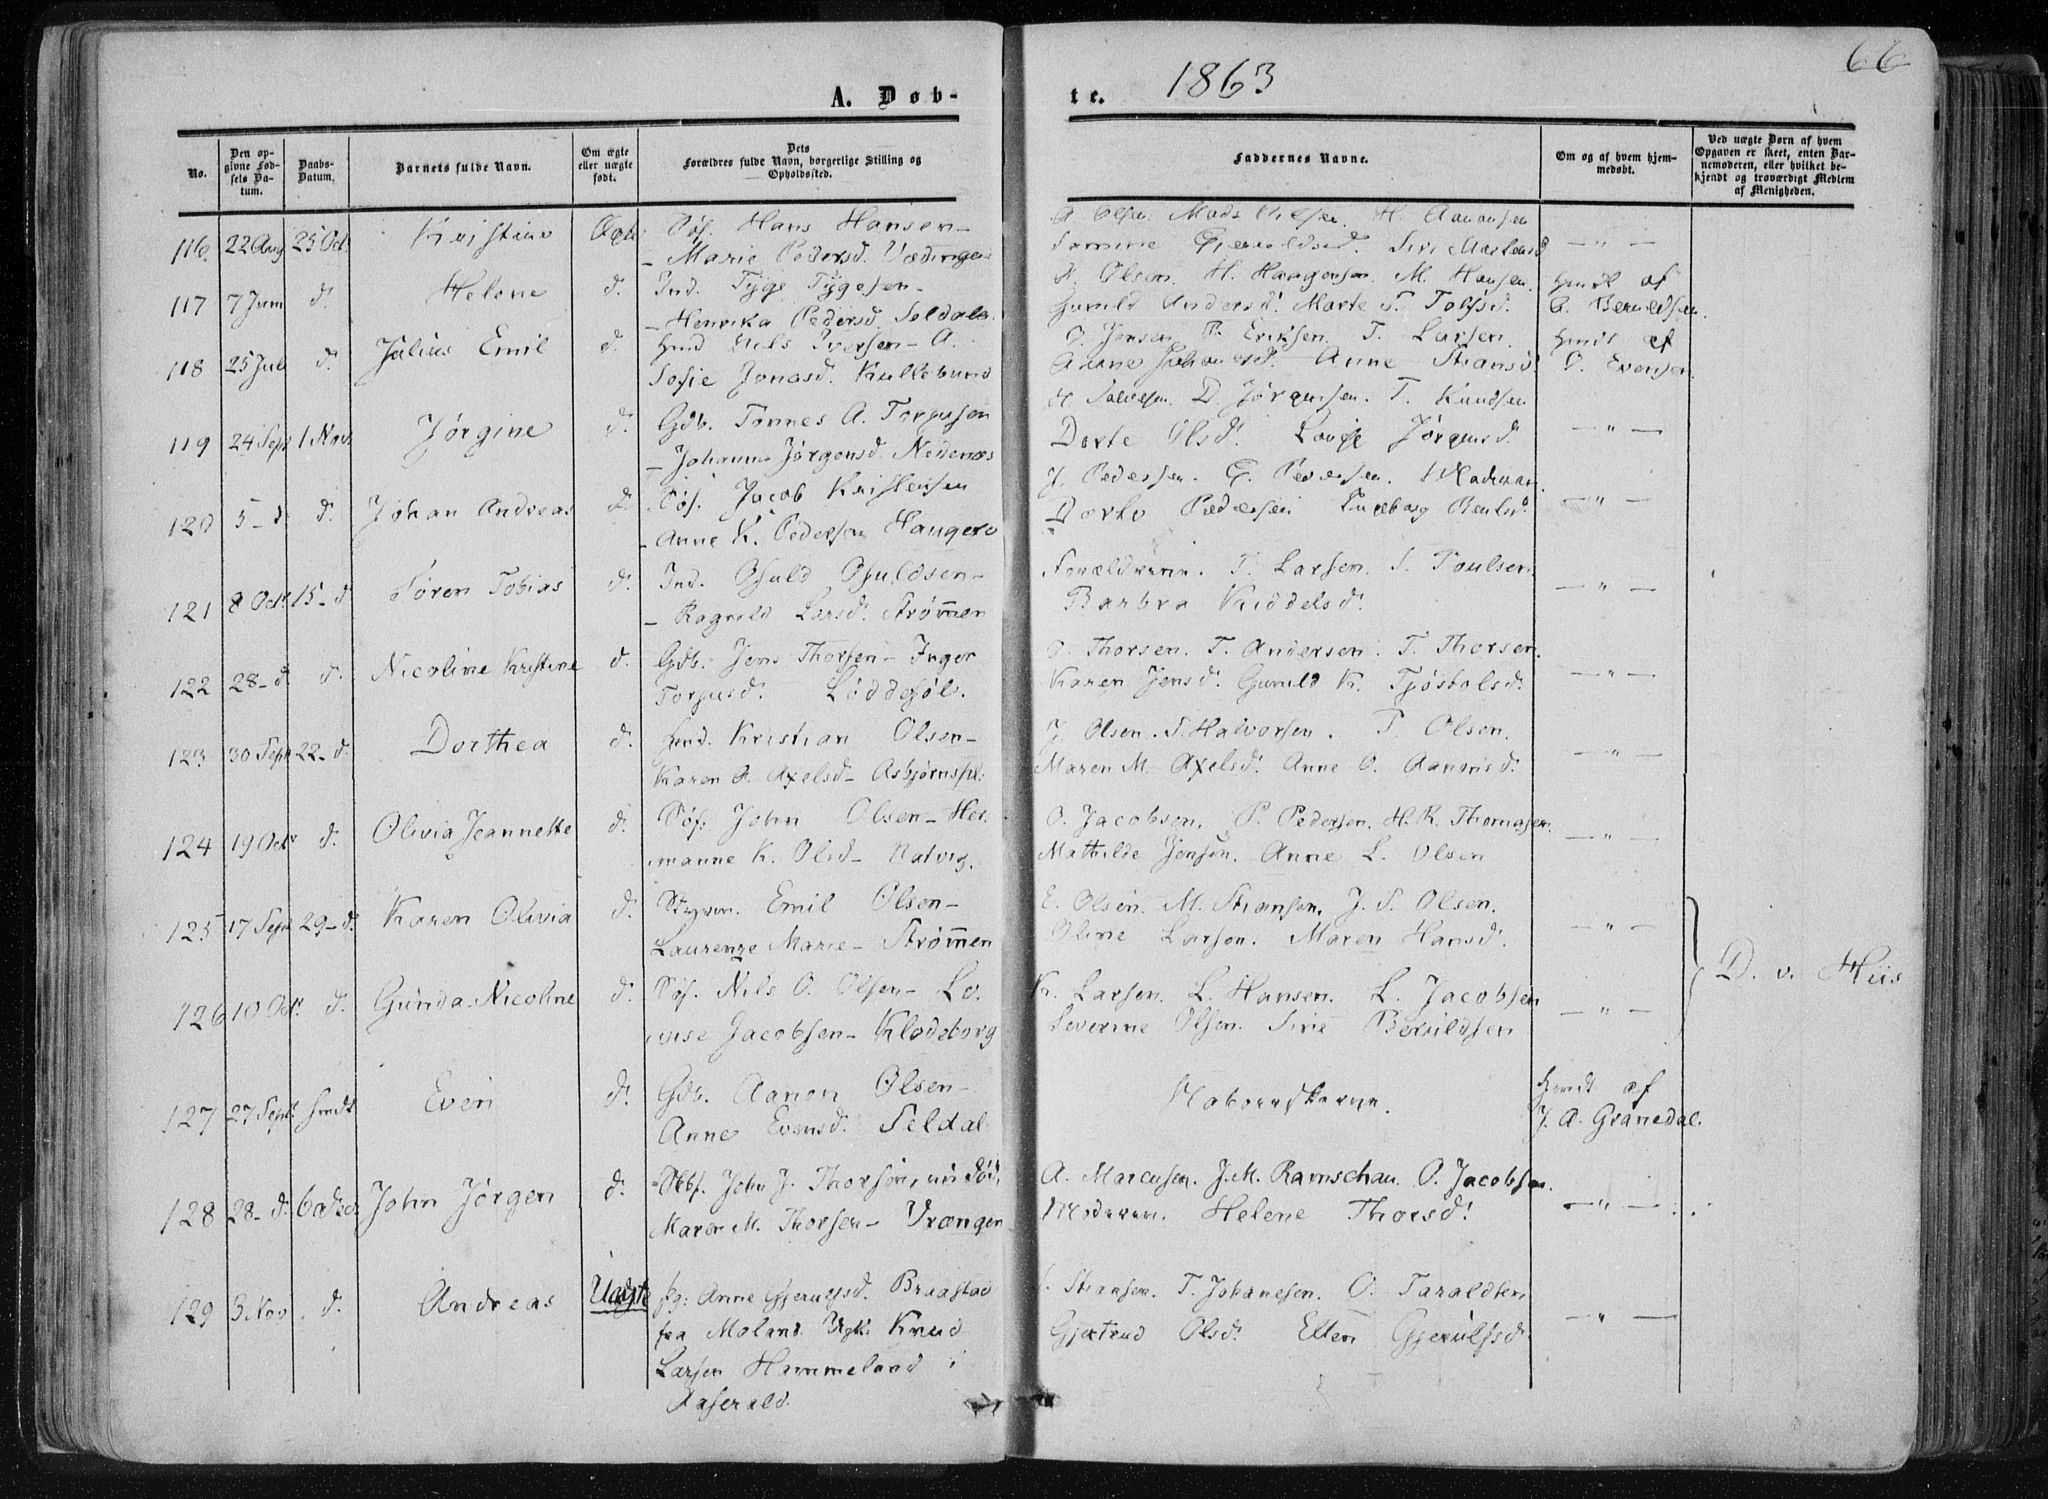 66
A. Døb-
te. 1863
No.
Den op-
givne Fød-
sels Da-
tum.
Daabs-
Datum.
Barnets fulde Navn.
Om ægte
eller uægte
født.
Dets
Forældres fulde Navn, borgerlige Stilling og
Opholdssted.
Faddernes Navne.
Om og af hvem hjem-
medøbt.
Ved uægte Børn af hvem
Opgaven er skeet, enten Bar-
nemoderen, eller hvilket be-
kjendt og troværdigt Medlem
af Menigheden.
116. 22 Aug 25 Oct Kristine Ægte Søf. Hans Hansen-
Marie Pedersd.
O. Olsen. Mads H. Aanonsen
— " —
117 7 Juni d. Helene d. Ind. Tyge Tygesen-
Henrika Pedersd. Seldalen.
Olsen. H. Haagensen. M. Hansen.
Gunild Andersd. Marte T. Tolfsd.
Hmdt af
118 25 Juli d. Julius Emil d. Hmd Nils Iversen- A.
Sofie Jonasd. Kullebund
O. Jensen. P. Eriksen. T. Larsen.
Anne Anne
Hmdt af
O. Evensen.
119 24 Sept 1 Nov. Jørgine d. Gdb. Tønnes A. Torjusen
Johanne Jørgensd. Nedenæs
D. Jørgensen. T. Knudsen
Dorte Olsd. Lovise Jørgensd.
— " —
120 5- d. d. Johan Andreas d. Søf. Jacob Kristensen
Anne K. Pedersen
J. Pedersen. G. Pedersen.
Dorte Pedersen Ingeborg
— " —
121 8 Oct. 15- d Søren Tobias d. Ind. Osuld Osuldsen-
Ragnild Larsd. Strømmen
Forældrene. T. Larsen. S. Poulsen.
Barbra Kiddelsd.
— " —
122 28- d. d. Nicoline Kristine d. Gdb. Jens Thorsen- Inger
Torjusd. Løddesøl.
O. Thorsen. T. Andersen. T. Thorsen.
Karen Jensd. Gunild K. Tjøstolsd.
— " —
123 30 Sept 22- d. Dorthea d. Hmd. Kristian Olsen-
Karen A. Axelsd- Asbjørnspl.
J. Olsen. S. Halvorsen. P. Olsen.
Maren M. Axelsd. Anne O. Aanonsd.
— " —
124 19 Oct. d. Olivia Jeannette d. Søf. John Olsen- Her-
manne K. Olsd- Natvig.
O. Jacobsen. P. Pedersen. H. R. Thomasen.
Mathilde Jensen. Anne L. Olsen
— " —
125 17 Sept 29- d. Karen Olivia d. Styrm. Emil Olsen-
Laurenze Marie- Strømmen
E. Olsen. M. Stiansen. J. S. Olsen.
Oline Larsen. Maren Hansd.
— " —
126 10 Oct. d. Gunda Nicoline d. Søf. Nils O. Olsen- Lo-
vise Jacobsen- Klodeborg
K. Larsen. L. Hansen. L. Jacobsen
Severine Olsen. Sirie Beruldsen
— " —
D. v. Hiis
127 27 Sept. hmdt Even d. Gdb. Aanon Olsen-
Anne Evensd. Seldal.
Naboerskerne.
Hmdt af
J. A. Granedal.
128 28- d. 6 Decbr John Jørgen d. Skbf. John J. Thorsen, nu død,
Maren M. Thorsen- Vrængen
A. Marcusen. J. M. Ramschau. O. Jacobsen.
Moderen. Helene Thorsd.
— " —
129 3 Nov. d. Andreas Uægte Pg: Anne Gjerulfsd. Braastad
fra Moland. Ugk. Knud
Larsen Hammeland i
Aaserald.
Stiansen. T. Johanesen. O. Taraldsen.
Gjertrud Olsd. Ellen Gjerulfsd.
— " —